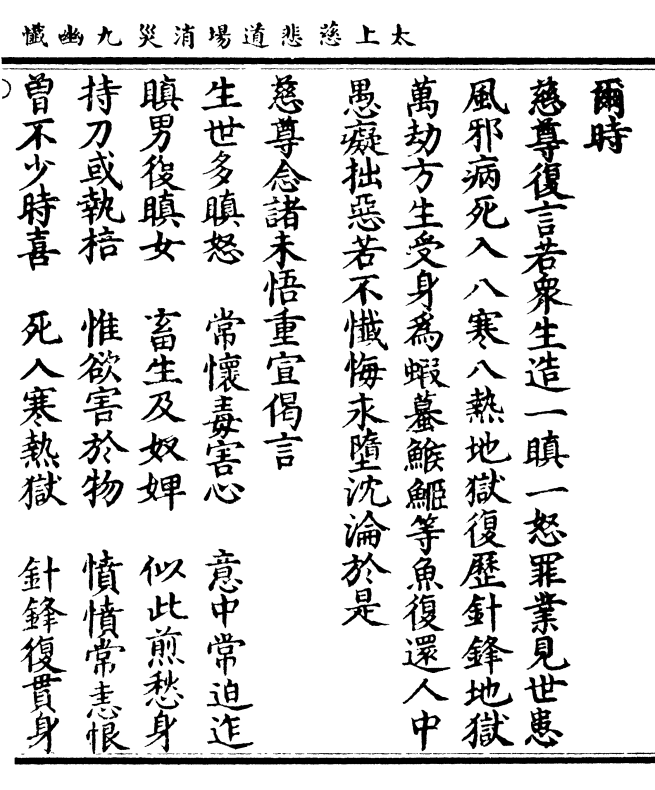 太上慈悲道場消災九幽懺
爾時
慈尊復言若衆生造一瞋一怒罪業見世患
風邪病死入八寒八熱地獄復歷針鋒地獄
萬劫方生受身爲蝦蟇鯸䱌等魚復還人中
愚癡拙惡若不懺悔永墮沈淪於是
慈尊念諸未悟重宣偈言
生世多瞋怒 常懷毒害心 意中常迫迮
瞋男復瞋女 畜生及奴婢 似此煎愁身
持刀或執棓 惟欲害於物 憤憤常恚恨
曾不少時喜 死入寒熱獄 針鋒復貫身